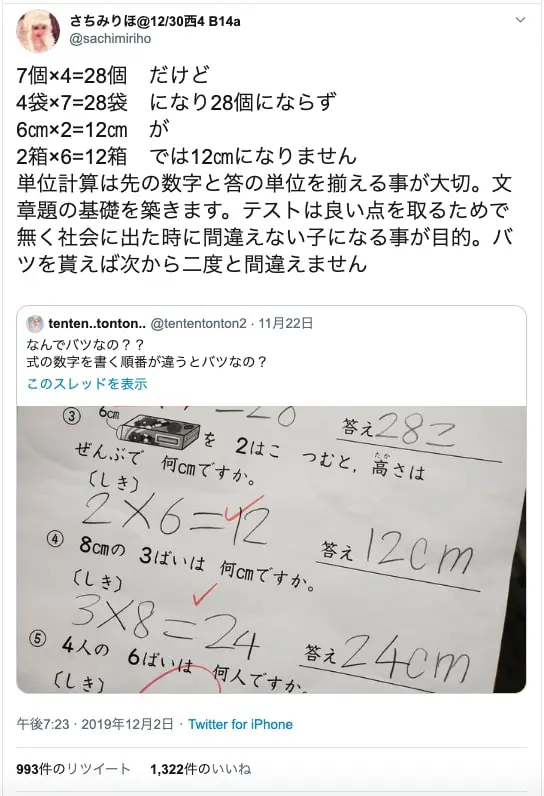 さちみりほ@12/30西4 B14a
@sachimiriho
7個×4=28個　だけど
4袋×7=28袋　になり28個にならず
6㎝×2=12㎝　が
2箱×6=12箱　では12㎝になりません
単位計算は先の数字と答の単位を揃える事が大切。文
章題の基礎を築きます。テストは良い点を取るためで
無く社会に出た時に間違えない子になる事が目的。バ
ツを貰えば次から二度と間違えません
tenten..tonton.. @tententonton2 · 11月22日
なんでバツなの？？
式の数字を書く順番が違うとバツなの？
このスレッドを表示
③ 6cm を 2はこ つむと，高さは
たか
ぜんぶで 何cmですか。
答え28こ
〔しき〕
2×6=12
答え12cm
④ 8cmの 3ばいは 何cmですか。
〔しき〕
3×8=24
答え24cm
⑤ 4人の 6ばいは 何人ですか。
〔しき〕
午後7:23 · 2019年12月2日 · Twitter for iPhone
993件のリツイート 1,322件のいいね